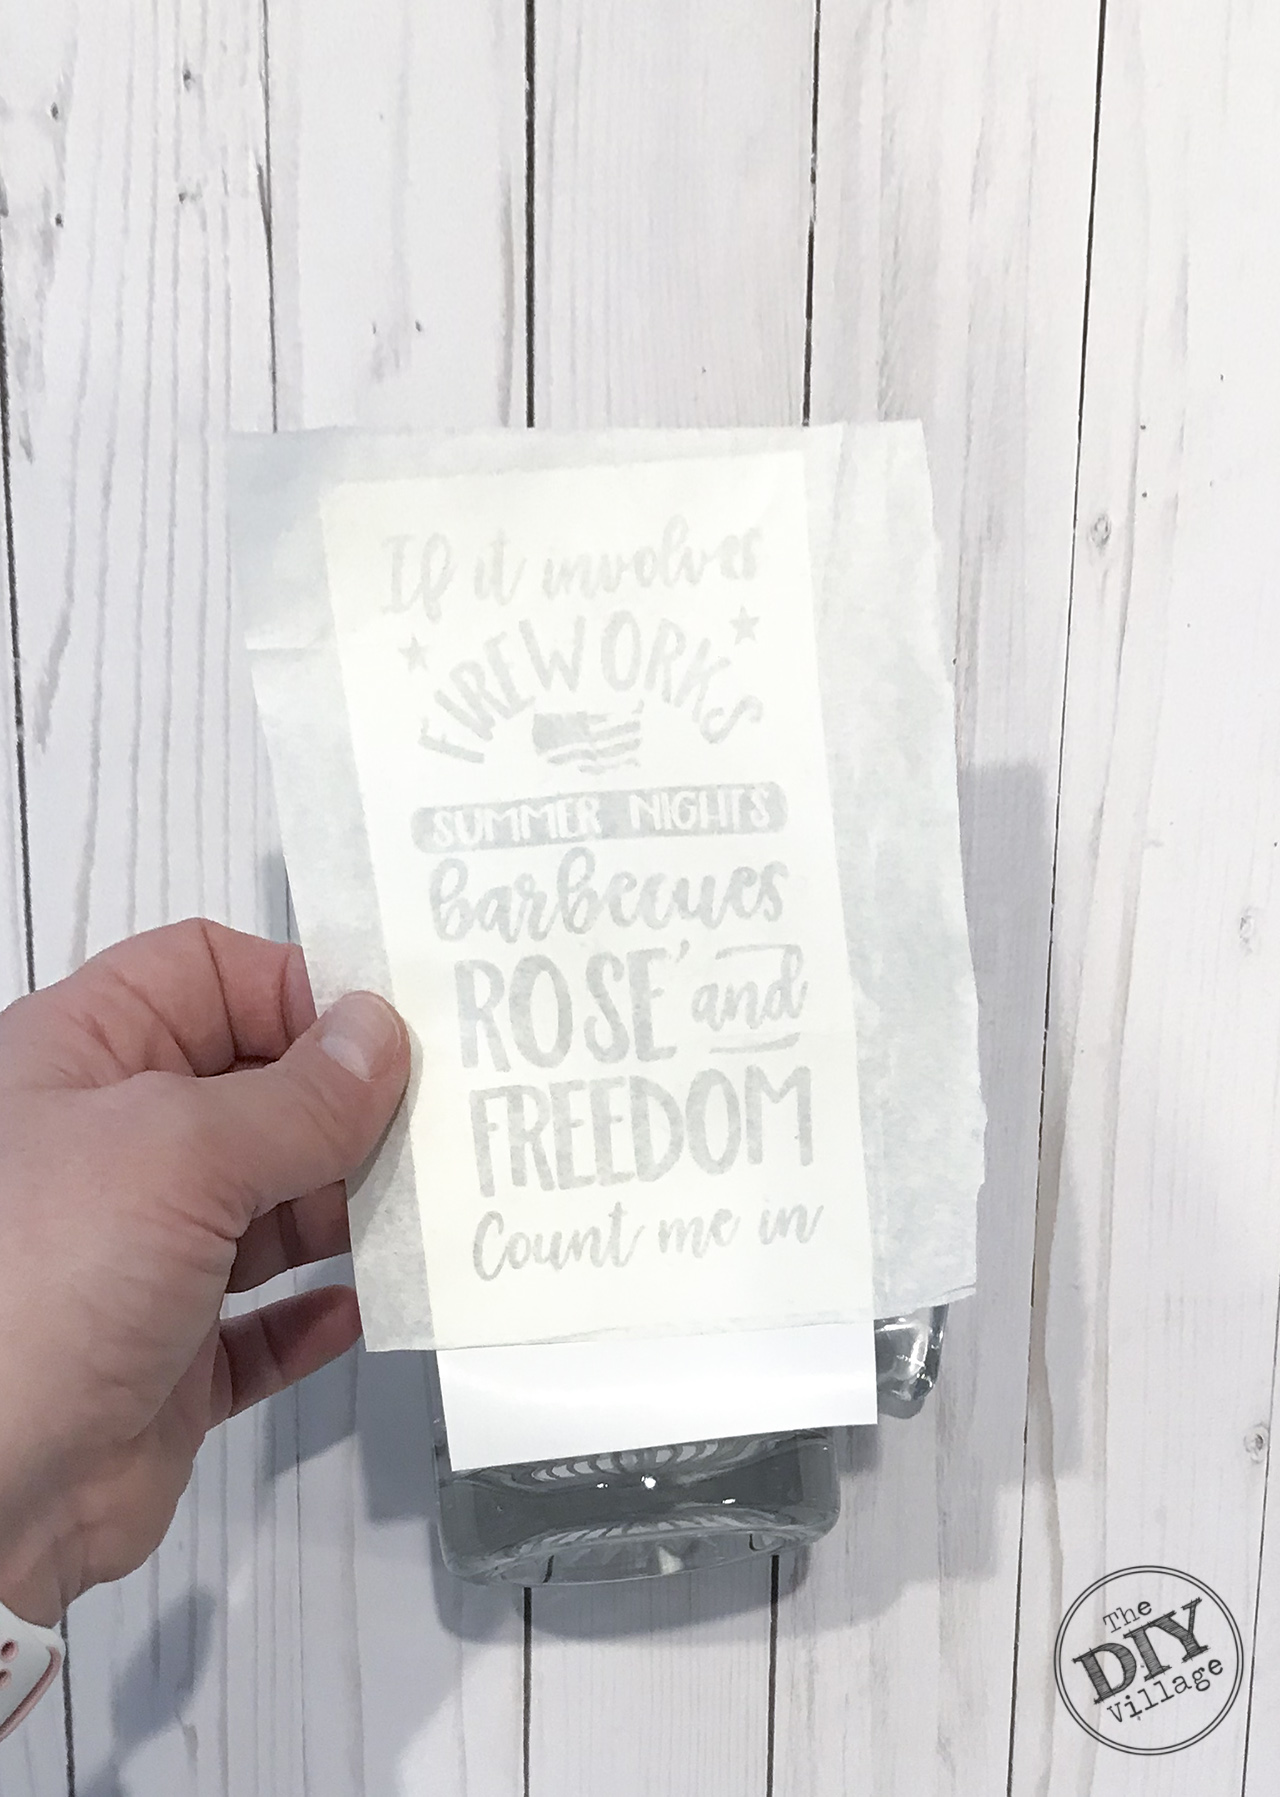 If it involves
FIREWORKS
SUMMER NIGHTS
barbecues
ROSE' and
FREEDOM
Count me in
The
DIY
Village